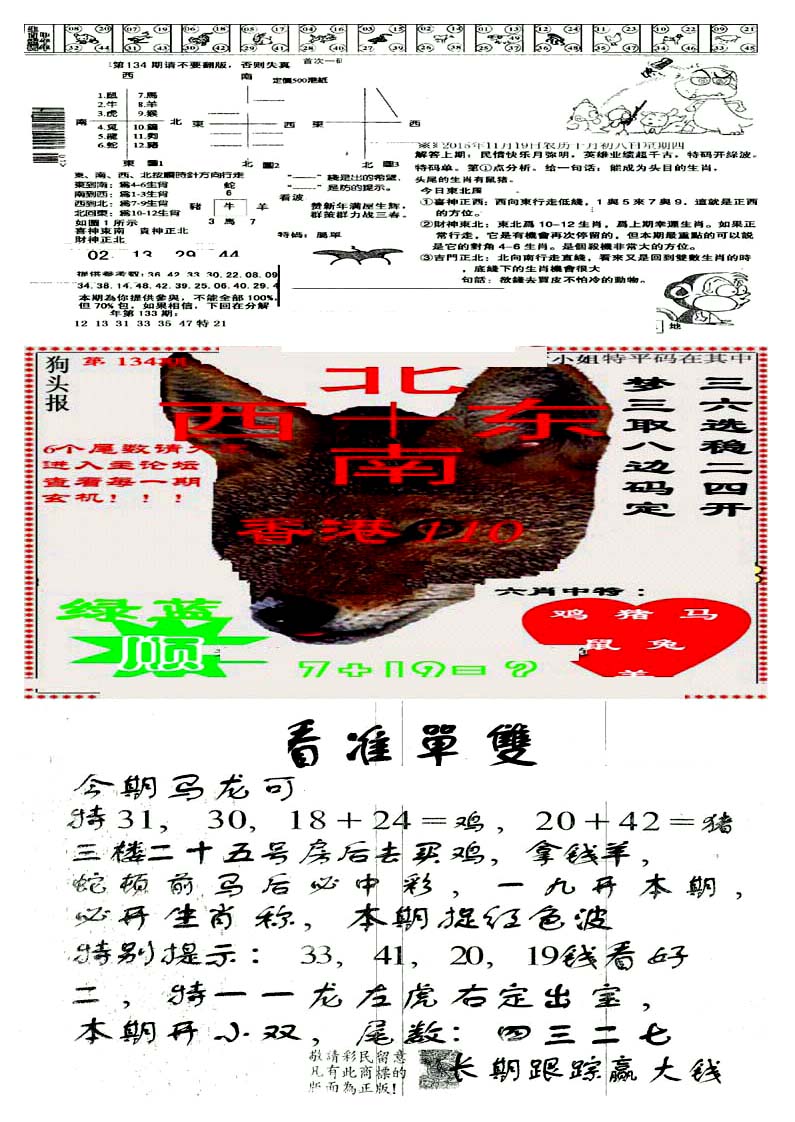 08 20 07 19 06 18 05 17 04 16 03 15 02 14 01 13 12 24 11 23 10 22 09 21
32 44 31 43 30 42 29 41 28 40 27 39 26 38 25 37 36 48 35 47 34 46 33 45
第134期请不要翻版,否则失真
定價500港紙
西 南
1.鼠 7.馬
2.牛 8.羊
3.虎 9.猴
4.兔 10.鷄
5.龍 11.狗
6.蛇 12.豬
南 北 東 西 東 西
東 圖1 北 圖2 北 圖3
東、南、西、北按順時針方向行走
東到南:爲4-6生肖
南到西:爲1-3生肖
西到北:爲7-9生肖
北回東:爲10-12生肖
如圖1所示
喜神東南 貴神正北
財神正北
蛇
6
豬 牛 羊
3 馬 7
綫是出的希望,
是防的提示。
看波
赞新年满屋生辉,
群策群力战三春。
特码:属單
02 13 29 44
提供参考数:36.42.33.30.22.08.09
34.38.14.48.42.39.25.06.40.29.4
本期為你提供參與,不能全部100%
但70%包,如果相信,下回在分解
年第133期:
12 13 31 33 35 47特21
2015年11月19日农历十月初八日星期四
解答上期:民情快乐月弥明,英雄业绩超千古,特码开綠波。
特码单。第①点分析。给一句话:能成为头目的生肖。
头尾的生肖有鼠猪。
今日東北四
①喜神正西:西向東行走低綫,1與5來7與9,這就是正西
的方位。
②財神東北:東北爲10-12生肖,爲上期幸運生肖。如果正
常行走,它是有機會再次停留的,但本期最重點的可以説
是它的對角4-6生肖。是個殺機非常大的方位。
③吉門正北:北向南行走直綫,看來又是回到雙數生肖的時
,底綫下的生肖機會很大
句話:欲錢去買皮不怕冷的動物。
地
狗头报
第134期
小姐特平码在其中
北
西十东
南
香港110
三六选稳二四开
梦三取八边码定
6个尾数请大
进入主论坛
查看每一期
玄机!!!
六肖中特:
鸡 猪 马
鼠 兔
羊
绿蓝
顺
7+19=?
看准單雙
今期马龙可
特31, 30, 18+24=鸡, 20+42=猪
三楼二十五号房后去买鸡,拿钱羊,
蛇顿前马后必中彩,一九开本期,
必开生肖称,本期捉红色波
特别提示: 33, 41, 20, 19钱看好
二,特一一龙左虎右定出宝,
本期开小双,尾数:四三二七
敬請彩民留意
凡有此商標的
版面為正版!
长期跟踪赢大钱